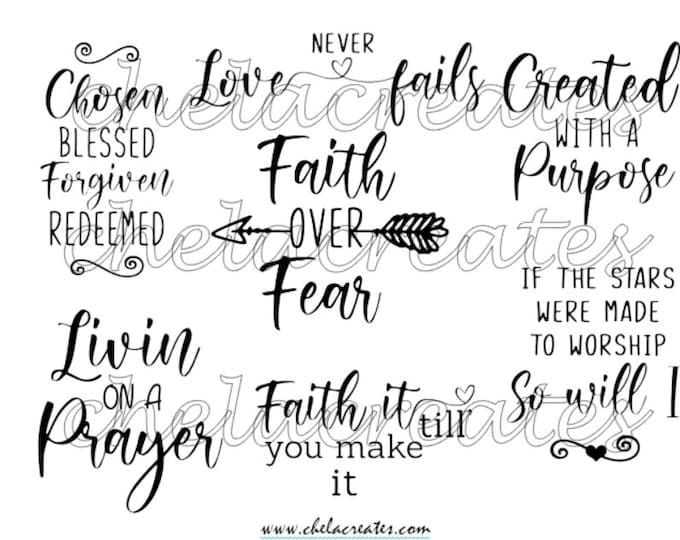 Chosen
BLESSED
Forgiven
REDEEMED
NEVER
Love fails
Created
WITH A
Purpose
Faith
OVER
Fear
IF THE STARS
WERE MADE
TO WORSHIP
So will I
Livin
ON A
Prayer
Faith it till
you make
it
chelacreates
chelacreates
chelacreates
www.chelacreates.com